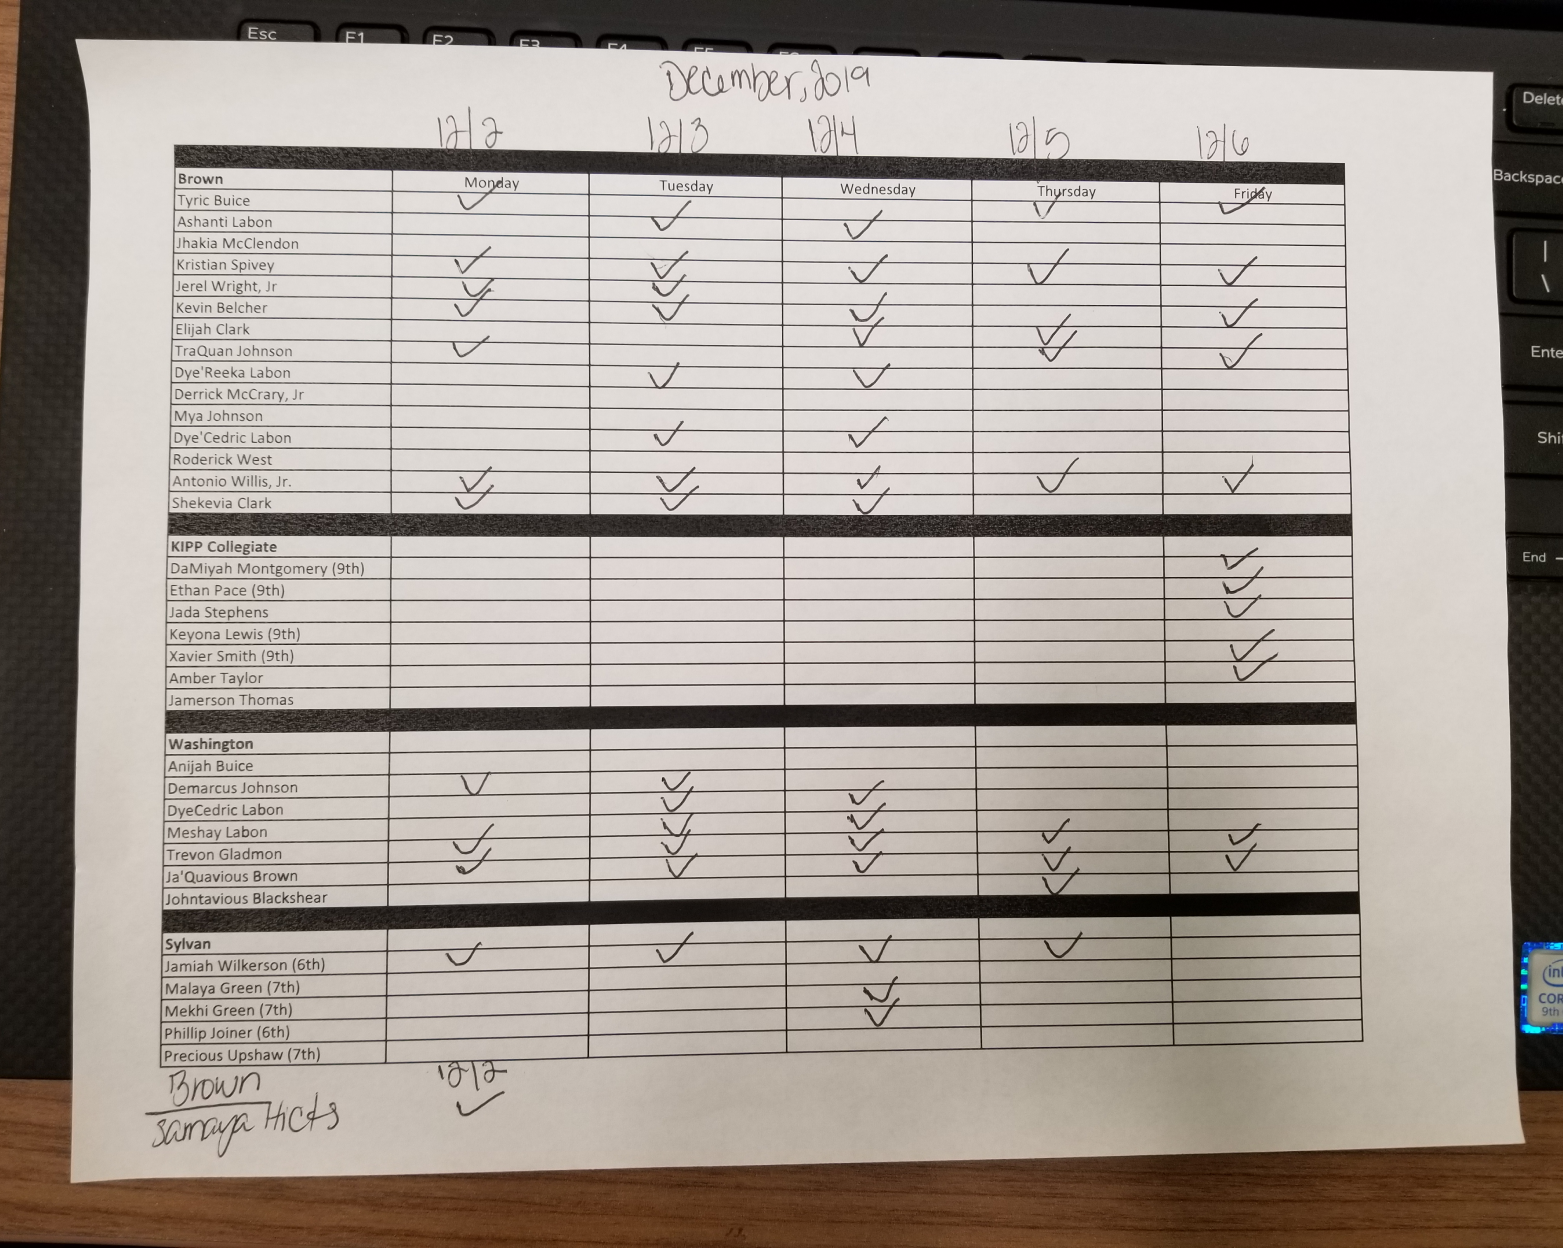 Esc F1 F2 F3 F4 F5 F6
Delete
Backspace
|
\
Enter
Shift
End
December, 2019
12/2 12/3 12/4 12/5 12/6
Brown Monday Tuesday Wednesday Thursday Friday
Tyric Buice ✓ ✓ ✓
Ashanti Labon ✓ ✓
Jhakia McClendon
Kristian Spivey ✓ ✓ ✓ ✓ ✓
Jerel Wright, Jr ✓ ✓
Kevin Belcher ✓ ✓ ✓ ✓
Elijah Clark ✓ ✓
TraQuan Johnson ✓ ✓ ✓
Dye'Reeka Labon ✓ ✓
Derrick McCrary, Jr
Mya Johnson
Dye'Cedric Labon ✓ ✓
Roderick West
Antonio Willis, Jr. ✓ ✓ ✓ ✓ ✓
Shekevia Clark ✓ ✓ ✓
KIPP Collegiate
DaMiyah Montgomery (9th) ✓
Ethan Pace (9th) ✓
Jada Stephens ✓
Keyona Lewis (9th)
Xavier Smith (9th) ✓
Amber Taylor ✓
Jamerson Thomas
Washington
Anijah Buice
Demarcus Johnson ✓ ✓
DyeCedric Labon ✓ ✓
Meshay Labon ✓ ✓
Trevon Gladmon ✓ ✓ ✓ ✓ ✓
Ja'Quavious Brown ✓ ✓ ✓ ✓ ✓
Johntavious Blackshear ✓
Sylvan
Jamiah Wilkerson (6th) ✓ ✓ ✓ ✓
Malaya Green (7th) ✓
Mekhi Green (7th) ✓
Phillip Joiner (6th)
Precious Upshaw (7th)
Brown 12/2
Samaya Hicks ✓
int
COR
9th